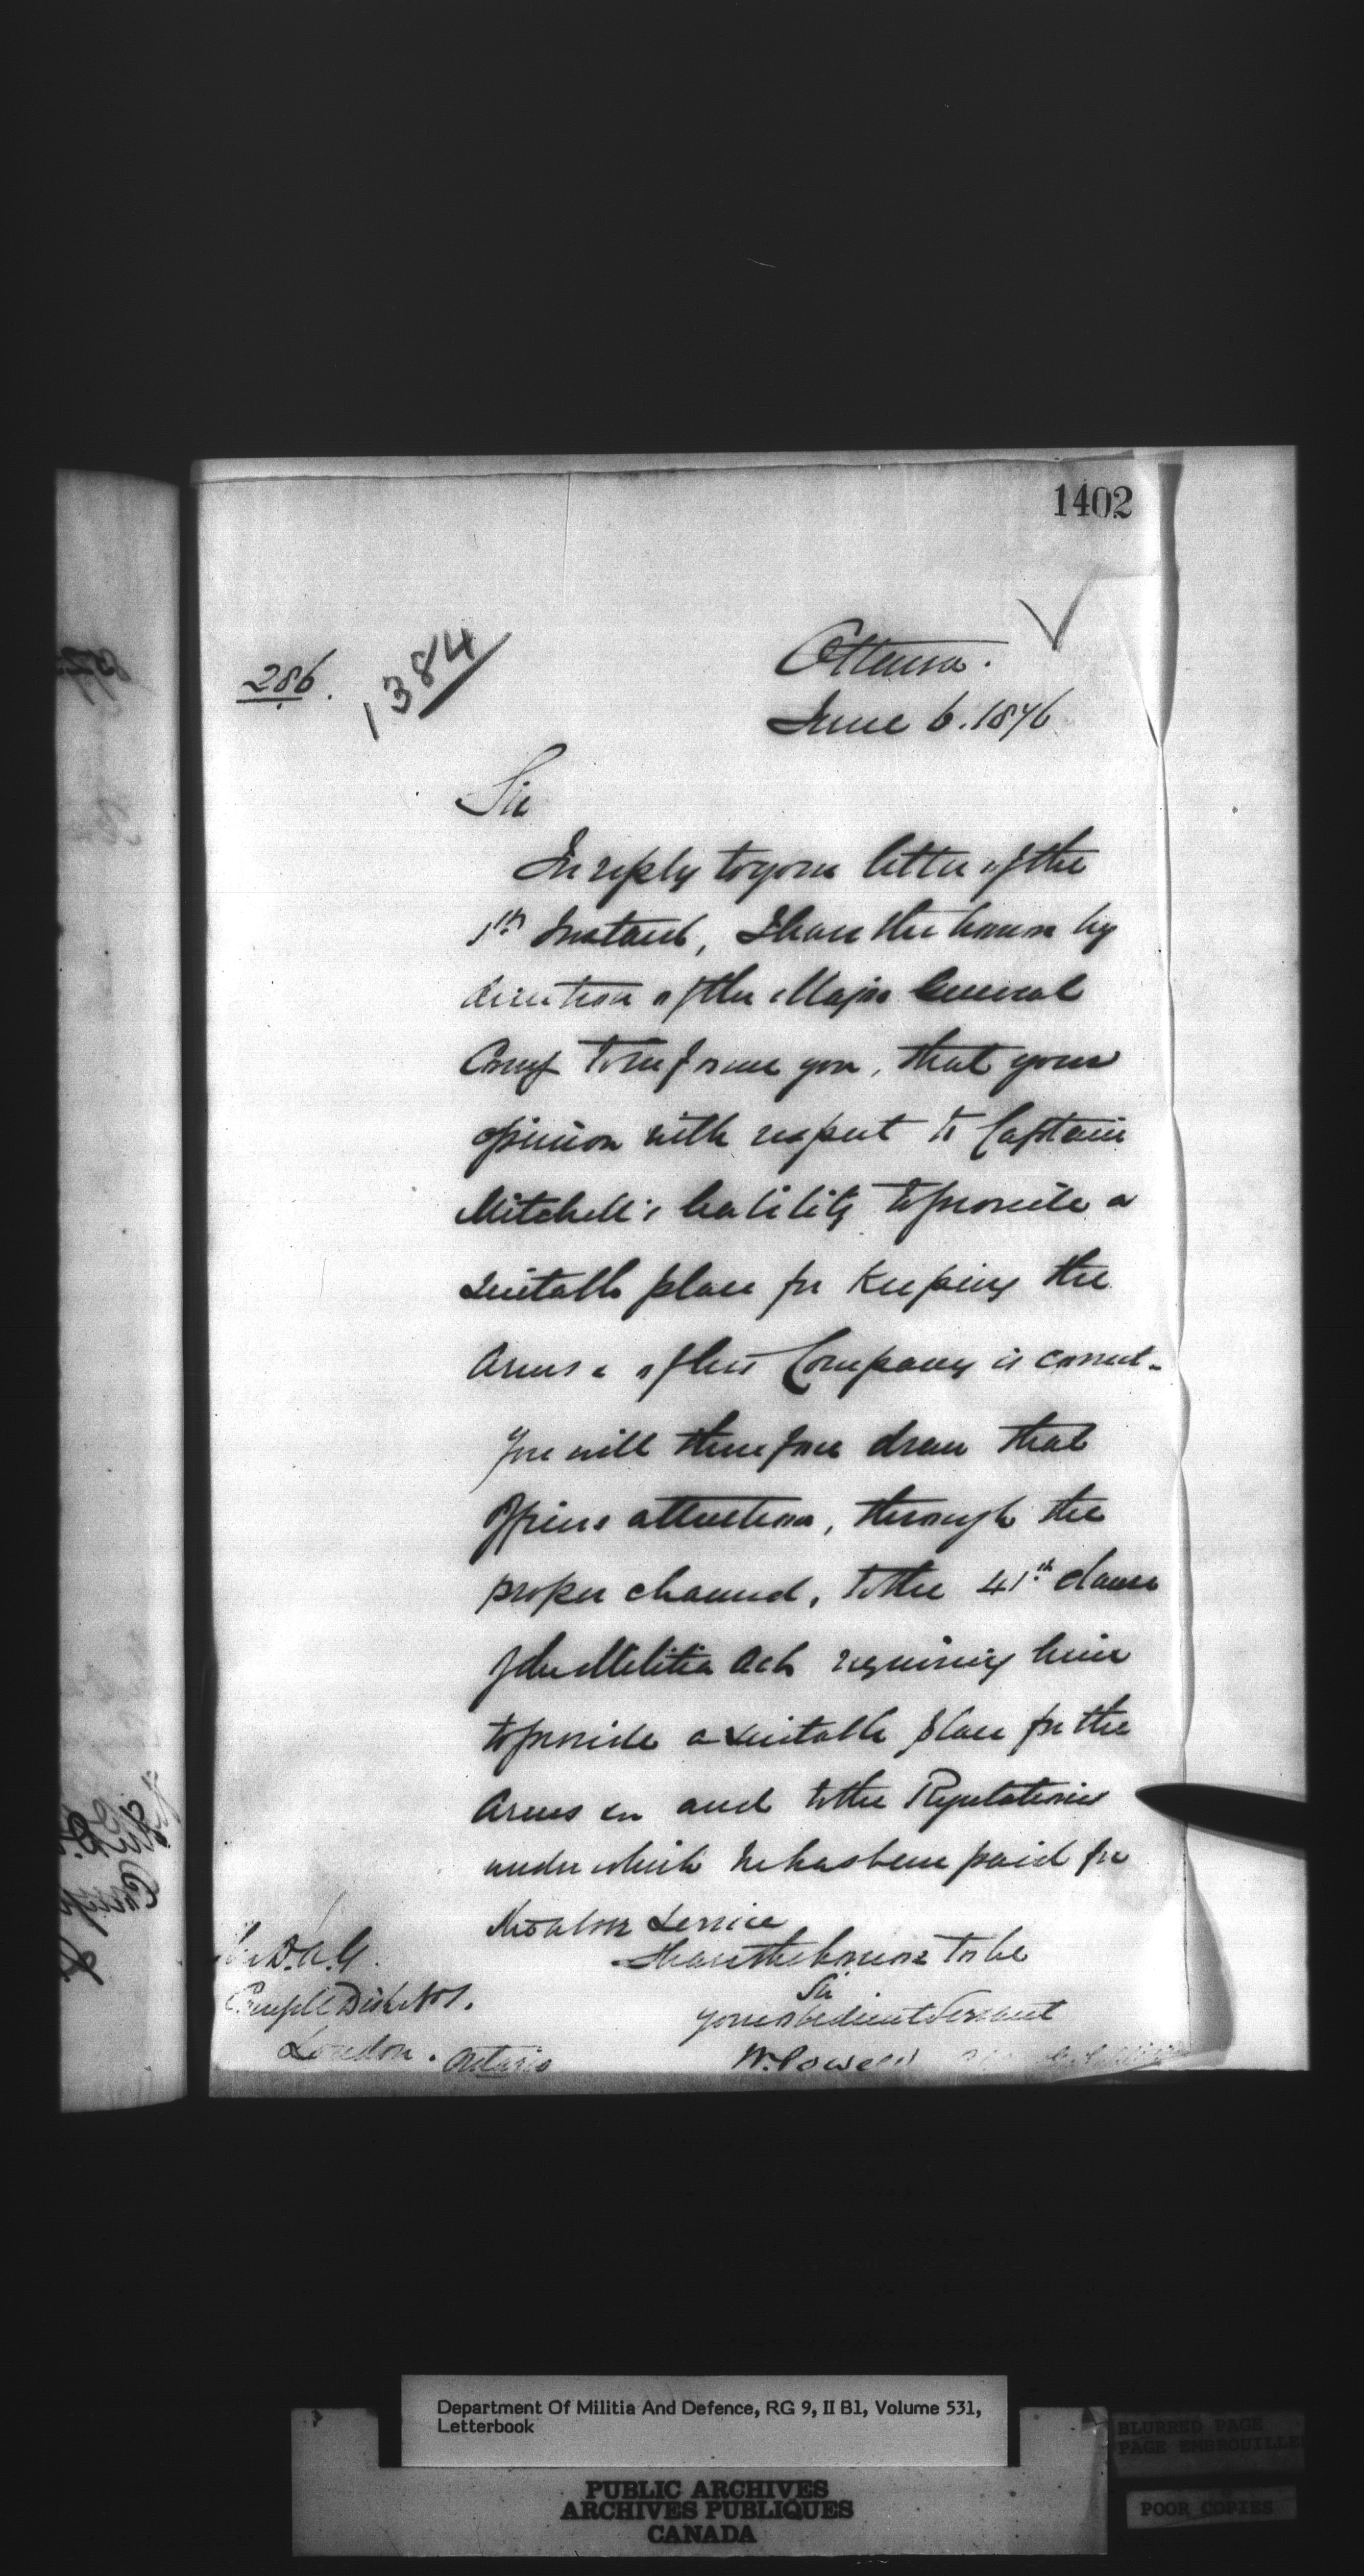 1402
286.
1384
Ottawa.
June 6. 1876
Sir
In reply to your letter of the
5th Instant, I have the honor by
direction of the Major General
Comg to inform you, that your
opinion with respect to Captain
Mitchell's liability to provide a
suitable place for keeping the
Arms &c of his Company is correct.
You will therefore draw that
Officers attention, through the
proper channel, to the 41st clause
of the Militia Act requiring him
to provide a suitable place for the
Arms &c and to the Regulations
under which he has been paid for
the above service
I have the honor to be
Sir
your obedient Servant
W. Powell
The D.A.G.
Comg Mil Dist No 1.
London. Ontario
Department Of Militia And Defence, RG 9, II B1, Volume 531,
Letterbook
PUBLIC ARCHIVES
ARCHIVES PUBLIQUES
CANADA
BLURRED PAGE
PAGE EMBROUILLE
POOR COPIES